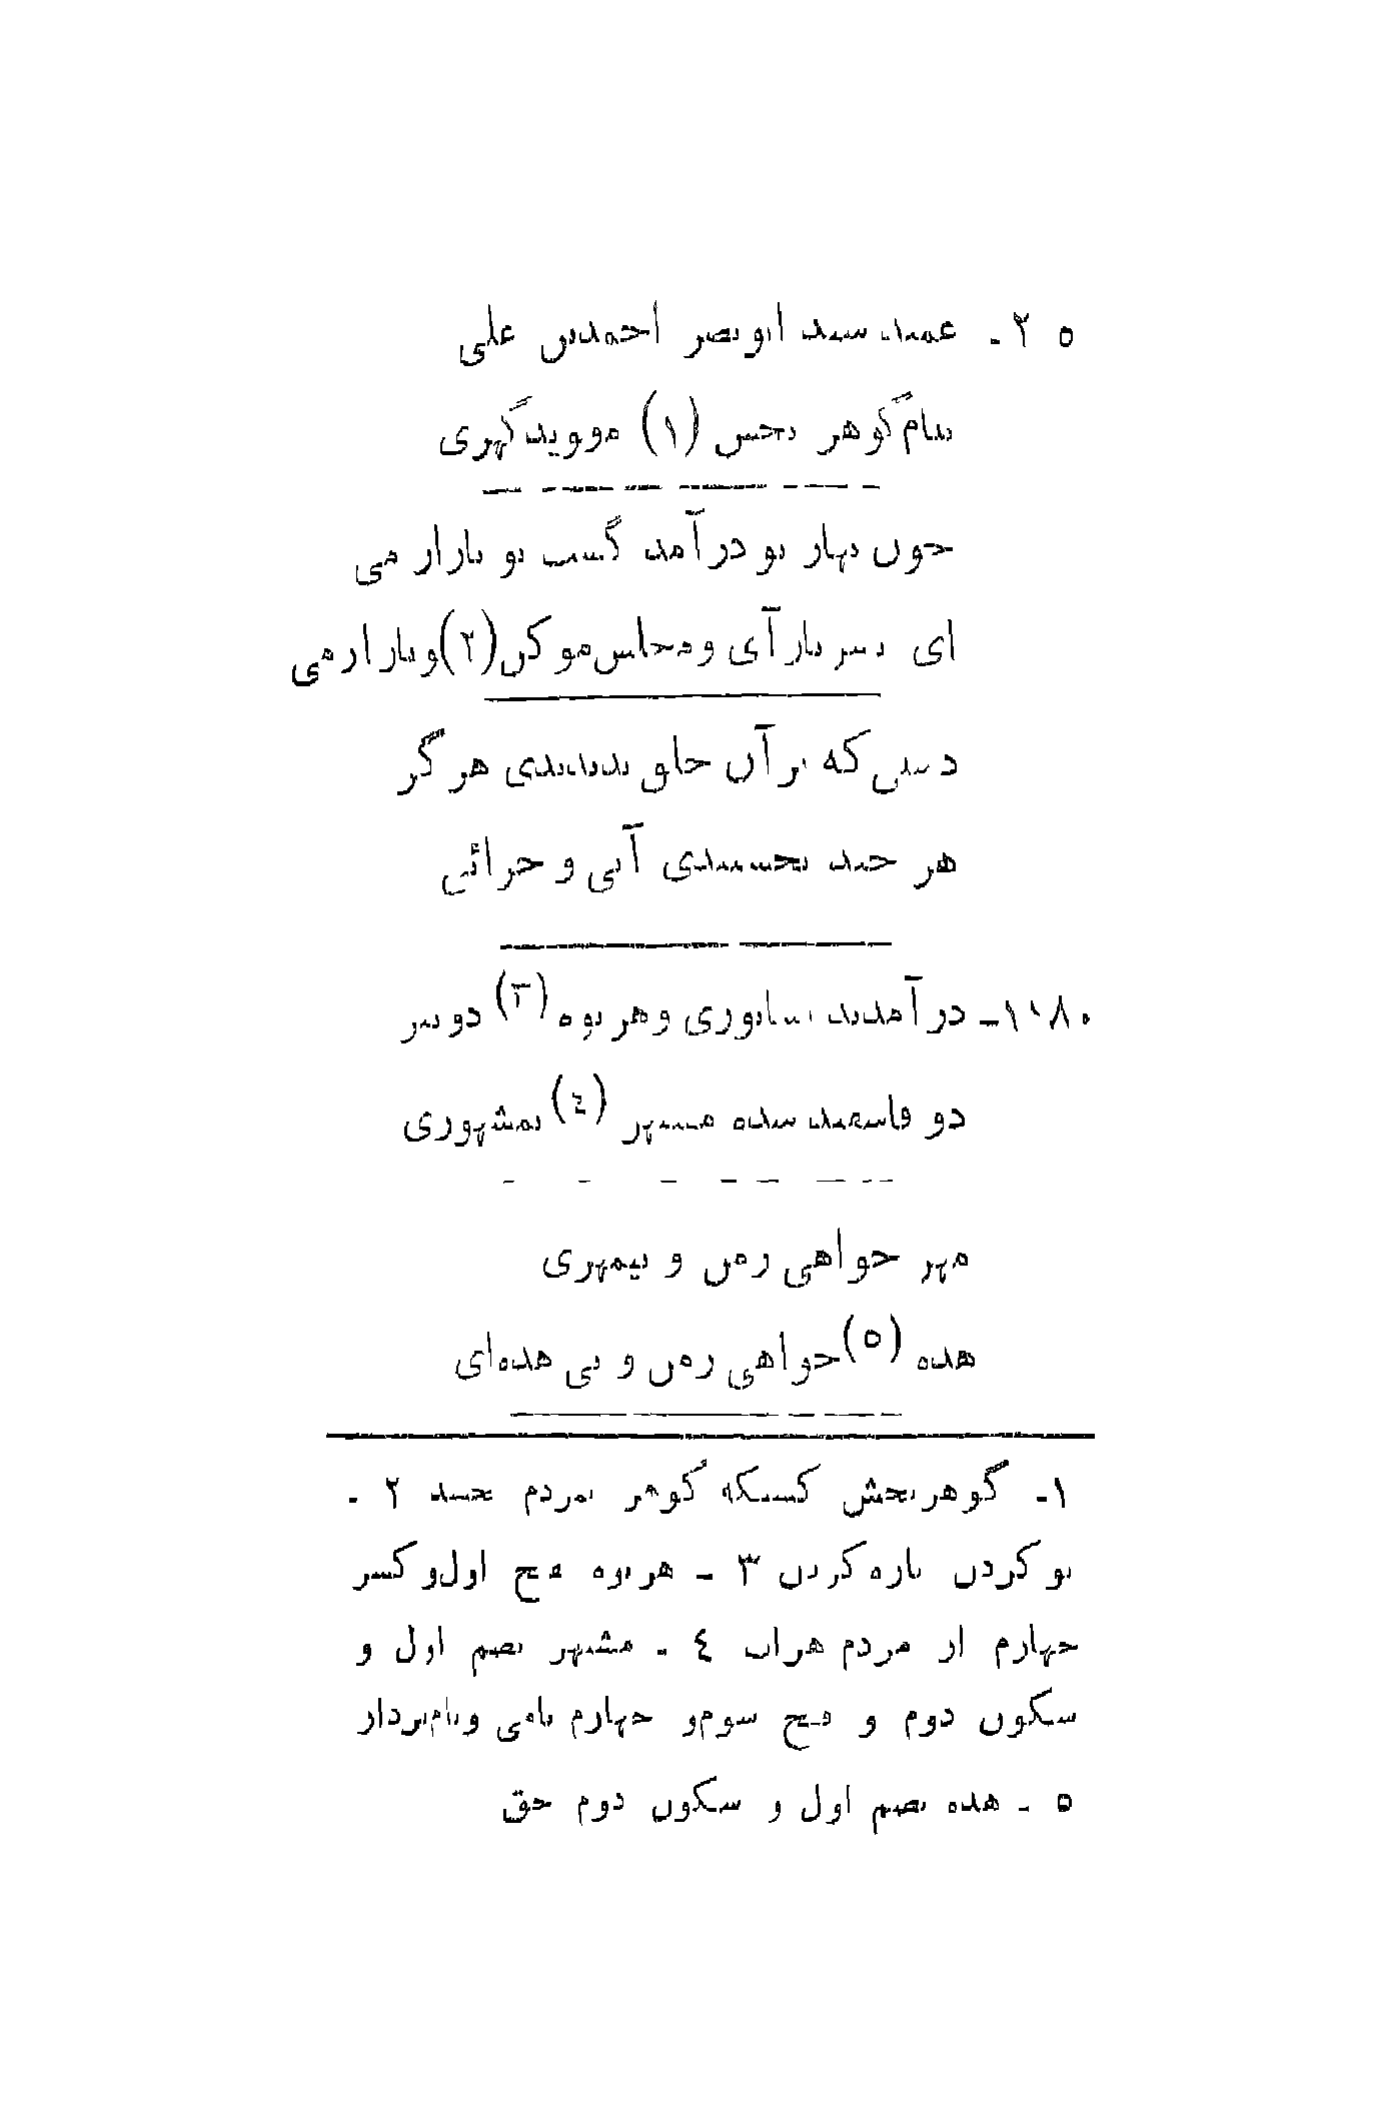 ۲۵ - عمید سید ابو نصر احمدبن علی
بنام گوهر بخش (۱) موویدگهری
چون بهار نو درآمد گشت نو بازار می
ای پسر بازآی و مجلس نو کن (۲) و بازار می
دستی که بر آن حلق پدیدی هرگز
هر چند بخسبیدی آبی و خرائی
۱۰۸۰- درآمدند نشابوری و هریوه (۳) دو سر
دو فاسقند شده مشهر (٤) بمشهوری
مهر خواهی زمن و بیمهری
هده (۵) خواهی زمن و بی هده‌ای
۱- گوهربخش کسیکه گوهر بمردم بخشد ۲ -
نو کردن تازه کردن ۳ - هریوه بفتح اول و کسر
چهارم از مردم هرات ٤ - مشهر بضم اول و
سکون دوم و فتح سوم و چهارم نامی و نام‌بردار
۵ - هده بضم اول و سکون دوم حق